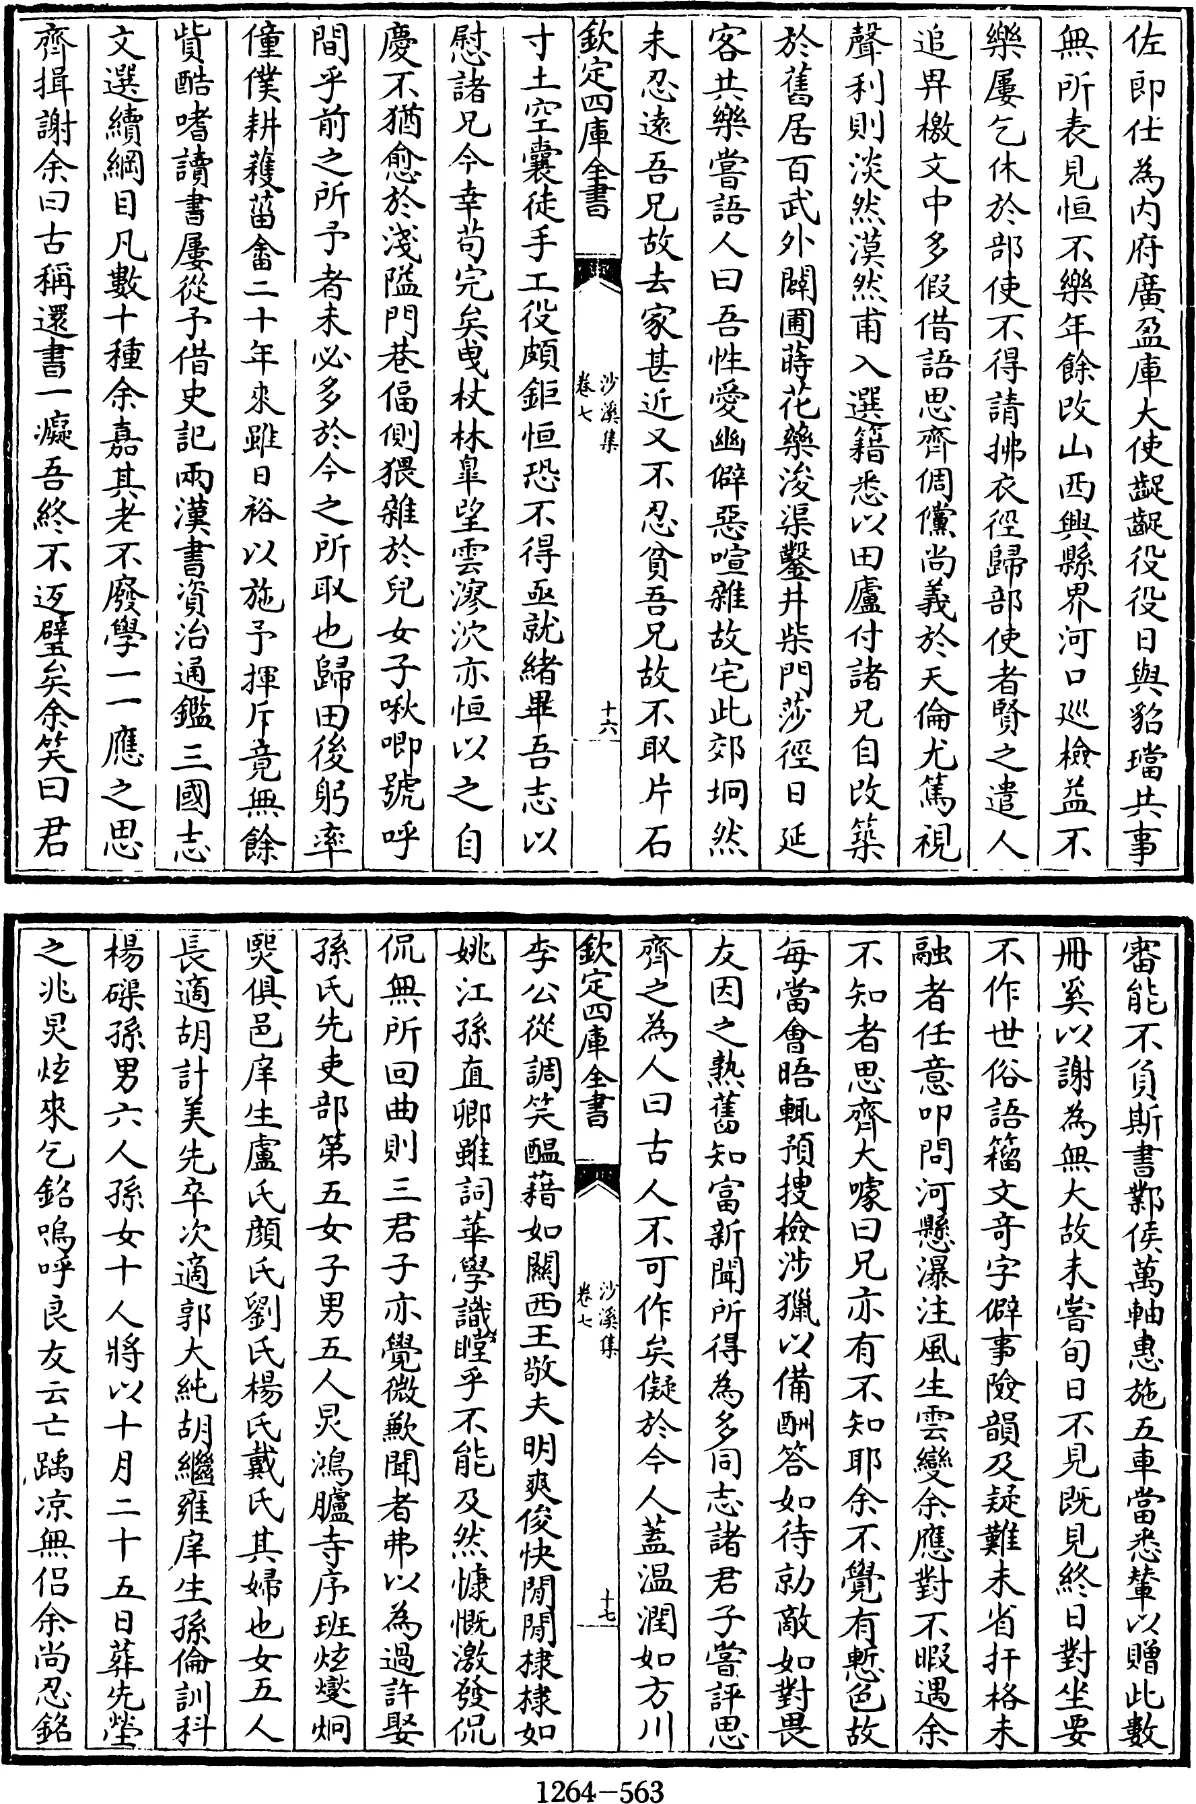 佐即仕為内府廣盈庫大使齪齪役役日與貂璫共事
無所表見恒不樂年餘改山西興縣界河口巡檢益不
樂屢乞休於部使不得請拂衣徑歸部使者賢之遣人
追畀檄文中多假借語思齊倜儻尚義於天倫尤篤視
聲利則淡然漠然甫入選籍悉以田廬付諸兄自改築
於舊居百武外闢圃蒔花藥浚渠鑿井柴門莎徑日延
客共樂嘗語人曰吾性愛幽僻惡喧雜故宅此郊坰然
未忍逺吾兄故去家甚近又不忍貧吾兄故不取片石
欽定四庫全書
沙溪集
卷七
十六
寸土空囊徒手工役頗鉅恒恐不得亟就緒畢吾志以
慰諸兄今幸苟完矣曵杖林臯望雲漻泬亦恒以之自
慶不猶愈於淺隘門巷偪側猥雜於兒女子啾唧號呼
間乎前之所予者未必多於今之所取也歸田後躬率
僮僕耕穫菑畬二十年來雖日裕以施予揮斥竟無餘
貲酷嗜讀書屢從予借史記兩漢書資治通鑑三國志
文選續綱目凡數十種余嘉其老不廢學一一應之思
齊揖謝余曰古稱還書一癡吾終不返璧矣余笑曰君
審能不負斯書鄴侯萬軸惠施五車當悉輦以贈此數
冊奚以謝為無大故未嘗旬日不見既見終日對坐要
不作世俗語籀文竒字僻事險韻及疑難未省扞格未
融者任意叩問河懸瀑注風生雲變余應對不暇遇余
不知者思齊大噱曰兄亦有不知耶余不覺有慙色故
每當會晤輒預搜檢涉獵以備酬答如待勍敵如對畏
友因之熟舊知富新聞所得為多同志諸君子嘗評思
齊之為人曰古人不可作矣儗於今人蓋温潤如方川
欽定四庫全書
沙溪集
卷七
十七
李公從調笑醖藉如關西王敬夫明爽俊快閒閒棣棣如
姚江孫直卿雖詞華學識瞠乎不能及然慷慨激發侃
侃無所回曲則三君子亦覺微歉聞者弗以為過許娶
孫氏先吏部第五女子男五人炅鴻臚寺序班炫爕炯
煚俱邑庠生盧氏顔氏劉氏楊氏戴氏其婦也女五人
長適胡計美先卒次適郭大純胡繼雍庠生孫倫訓科
楊磲孫男六人孫女十人將以十月二十五日葬先塋
之兆炅炫來乞銘嗚呼良友云亡踽凉無侣余尚忍銘
1264-563